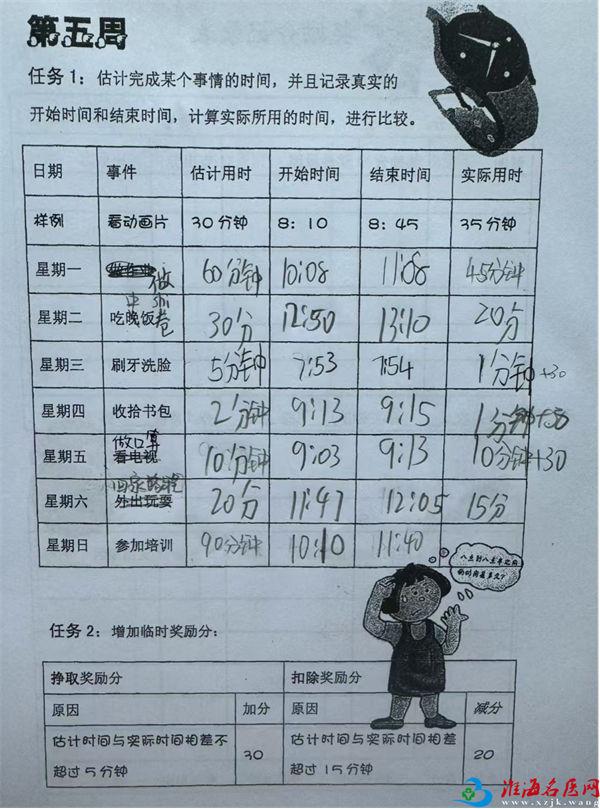 第五周
任务1：估计完成某个事情的时间，并且记录真实的
开始时间和结束时间，计算实际所用的时间，进行比较。
日期 事件 估计用时 开始时间 结束时间 实际用时
样例 看动画片 30分钟 8：10 8：45 35分钟
星期一 做 60分钟 10:08 11:08 45分钟
星期二 吃晚饭 30分 12:50 13:10 20分
星期三 刷牙洗脸 5分钟 7:53 7:54 1分钟+30
星期四 收拾书包 2分钟 9:13 9:15 1分钟+30
做口算
星期五 看电视 10分钟 9:03 9:13 10分钟+30
星期六 外出玩耍 20分 11:47 12:05 15分
星期日 参加培训 90分钟 10:10 11:40
八点到八点半之间
的时间是多久？
任务2：增加临时奖励分：
挣取奖励分 扣除奖励分
原因 加分 原因 减分
估计时间与实际时间相差不超过5分钟 30 估计时间与实际时间相差超过15分钟 20
淮海名医网
www.xzjk.wang